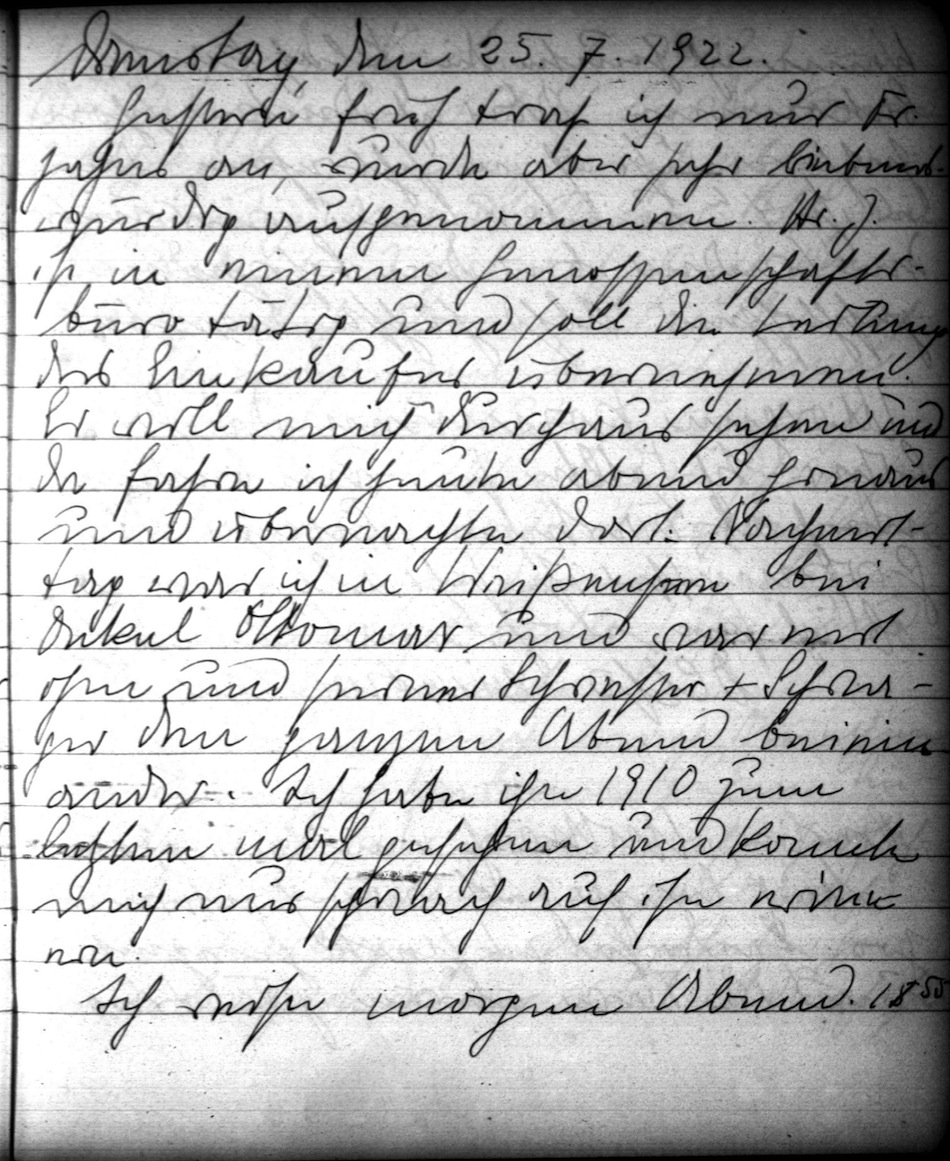 Dienstag, den 25. 7. 1922.
Gestern früh traf ich nur Fr.
Jahns an, wurde aber sehr liebens-
würdig aufgenommen. Hr. J.
ist in einem Genossenschafts-
büro tätig und soll die Leitung
des Einkaufes übernehmen.
Er will mich durchaus sehen und
da fahre ich heute abend hinaus
und übernachte dort. Nachmit-
tag war ich in Weißensee bei
Onkel Ottomar und war mit
ihm und seiner Schwester + Schwa-
ger den ganzen Abend beiein
ander. Ich habe ihn 1910 zum
letzten mal gesehen und konnte
mich nur schwach auf ihn erin-
nern.
Ich reise morgen Abend. 18 55